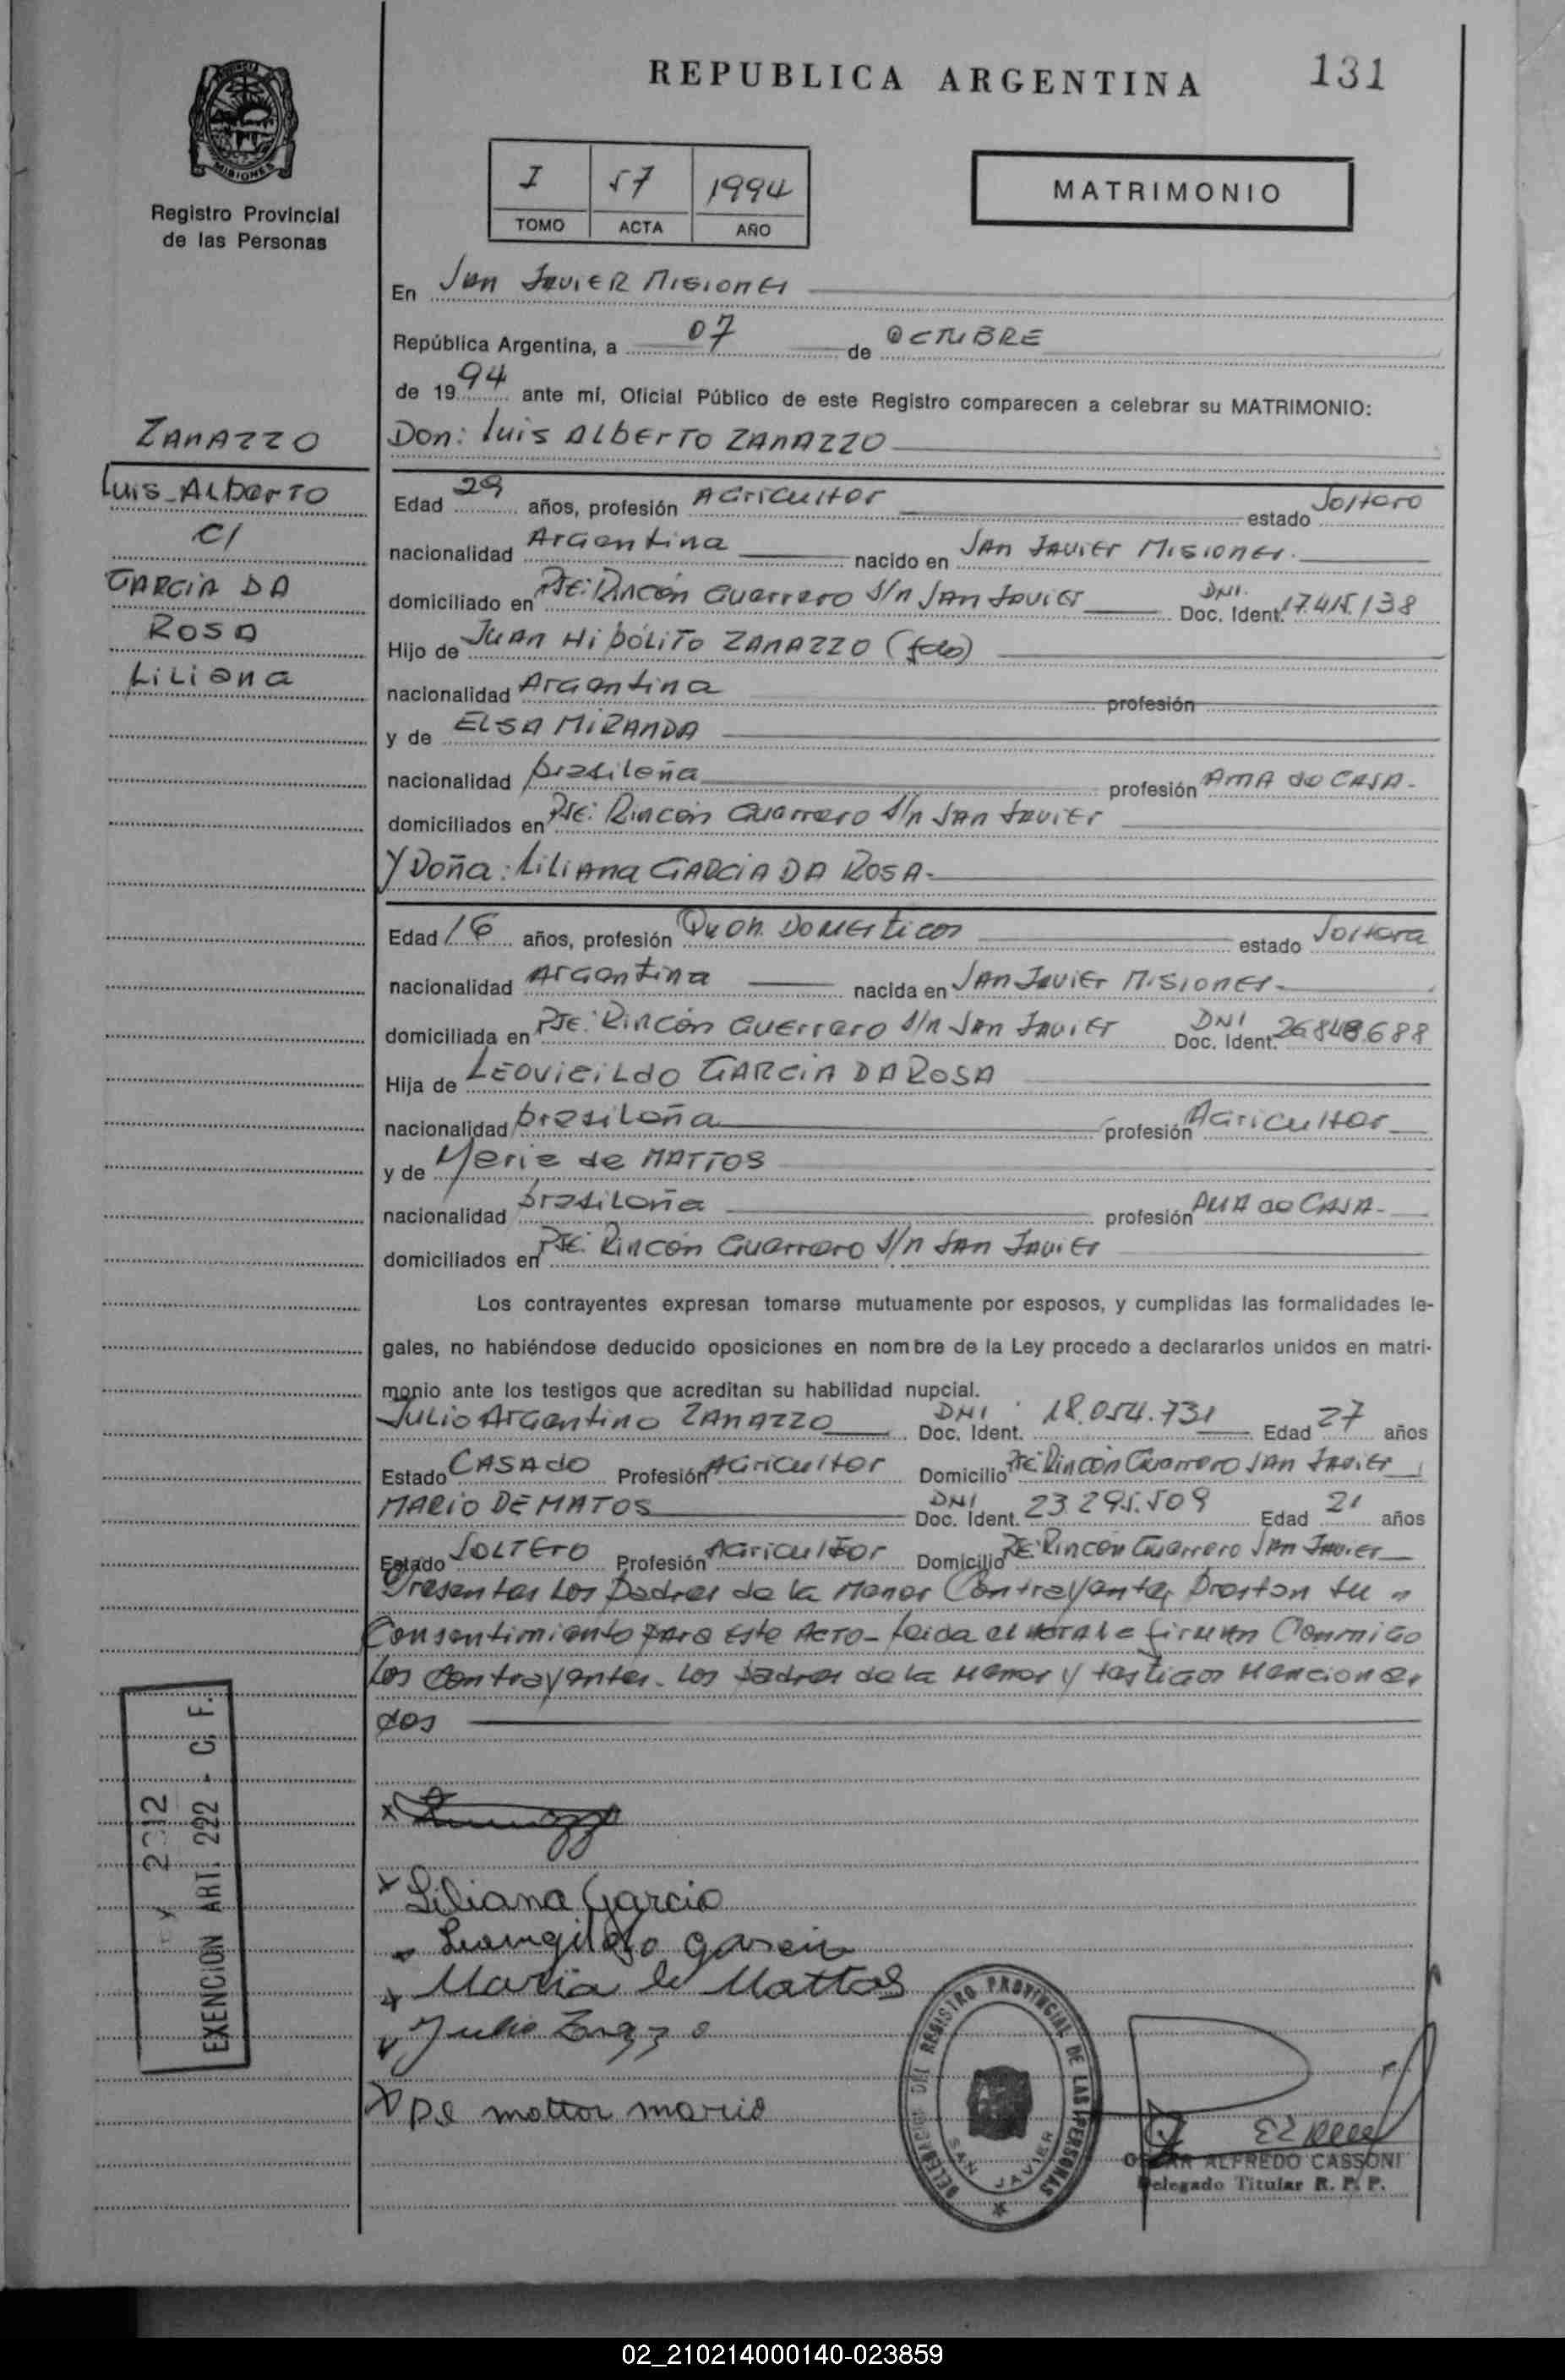 REPUBLICA ARGENTINA
131
PROVINCIA DE
MISIONES
Registro Provincial
de las Personas
I 57 1994
TOMO ACTA AÑO
MATRIMONIO
En San Javier Misiones
República Argentina, a 07 de OCTUBRE
de 1994 ante mí, Oficial Público de este Registro comparecen a celebrar su MATRIMONIO:
ZANAZZO
Luis Alberto
C/
GARCIA DA
ROSA
Liliana
Don: Luis Alberto ZANAZZO
Edad 29 años, profesión Agricultor estado Soltero
nacionalidad Argentina nacido en San Javier Misiones.
domiciliado en Pje: Rincón Guerrero s/n San Javier Doc. Ident. DNI. 17.415.138
Hijo de Juan Hipólito ZANAZZO (fdo)
nacionalidad Argentina profesión
y de ELSA MIRANDA
nacionalidad brasileña profesión AMA de CASA-
domiciliados en Pje: Rincón Guerrero s/n San Javier
Y Doña: Liliana GARCIA DA ROSA-
Edad 16 años, profesión Queh. Domesticos estado Soltera
nacionalidad Argentina nacida en San Javier Misiones-
domiciliada en Pje: Rincón Guerrero s/n San Javier Doc. Ident. DNI 26.848.688
Hija de LEOVIGILDO GARCIA DA ROSA
nacionalidad brasileña profesión Agricultor
y de Maria de MATTOS
nacionalidad brasileña profesión AMA de CASA-
domiciliados en Pje: Rincón Guerrero s/n San Javier
Los contrayentes expresan tomarse mutuamente por esposos, y cumplidas las formalidades le-
gales, no habiéndose deducido oposiciones en nombre de la Ley procedo a declararlos unidos en matri-
monio ante los testigos que acreditan su habilidad nupcial.
Julio Argentino ZANAZZO Doc. Ident. DNI 18.054.731 Edad 27 años
Estado CASADO Profesión Agricultor Domicilio Pje: Rincón Guerrero San Javier
MARIO DE MATOS Doc. Ident. DNI 23.295.509 Edad 21 años
Estado SOLTERO Profesión Agricultor Domicilio Pje: Rincón Guerrero San Javier
Presentes Los Padres de la Menor Contrayente, Prestan su
Consentimiento para este Acto- Leida el firman Conmigo
Los Contrayentes. Los padres de la Menor y testigos Menciona
dos
EXENCION ART. 222 - C. F.
2312
Liliana Garcia
Leovigildo garcia
Maria de Mattos
Julio Zanazzo
De mattos mario
DELEGACION DEL REGISTRO PROVINCIAL DE LAS PERSONAS
SAN JAVIER
OSCAR ALFREDO CASSONI
Delegado Titular R. P. P.
02_210214000140-023859